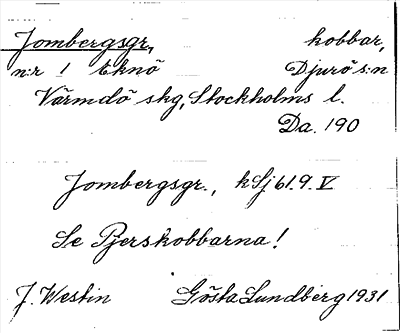 Jombergsgr, kobbar,
n:r 1 Eknö Djurö s:n
Värmdö skg, Stockholms l.
Da. 190
Jombergsgr., kSj 61.9.V
Se Pjerskobbarna!
J. Westin Gösta Lundberg 1931